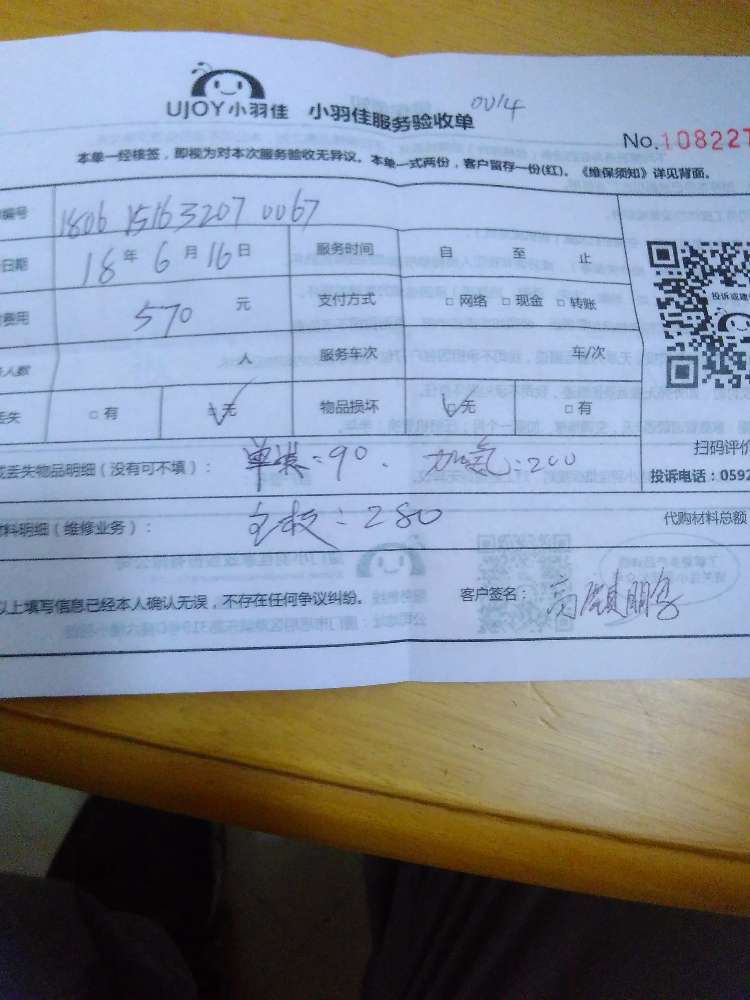 UJOY小羽佳 小羽佳服务验收单 0V14
No.108227
本单一经核签，即视为对本次服务验收无异议。本单一式两份，客户留存一份(红)。《维保须知》详见背面。
编号 1806 15163207 0067
日期 18年6月16日 服务时间 自 至 止
费用 570 元 支付方式 □网络 □现金 □转账
人数 人 服务车次 车/次
丢失 □有 □无 物品损坏 □无 □有
投诉或建
扫码评价
丢失物品明细（没有可不填）： 单装：90. 加氟：200
投诉电话：0592
材料明细（维修业务）： 主板：280 代购材料总额
以上填写信息已经本人确认无误，不存在任何争议纠纷。 客户签名：